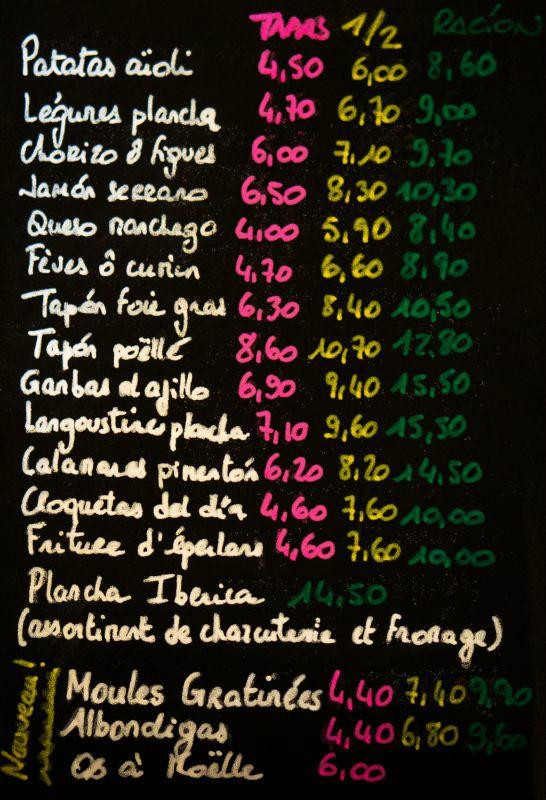 TAPAS 1/2 RACIÓN
Patatas aïoli 4,50 6,00 8,60
Légumes plancha 4,70 6,70 9,00
Chorizo & figues 6,00 7,10 9,70
Jamón serrano 6,50 8,30 10,30
Queso manchego 4,00 5,90 8,40
Fèves ô cumin 4,70 6,60 8,90
Tapón foie gras 6,30 8,40 10,50
Tapón poëllé 8,60 10,70 12.80
Gambas al ajillo 6,90 9,40 15,50
Langoustine plancha 7,10 9,60 15,50
Calamares pimentón 6,20 8,20 14,50
Croquetas del día 4,60 7,60 10,00
Friture d'éperlans 4,60 7,60 10,00
Plancha Iberica 14,50
(assortiment de charcuterie et fromage)
Nouveau!
Moules Gratinées 4,40 7,40 9,90
Albondigas 4,40 6,80 9,60
Os à Moëlle 6,00